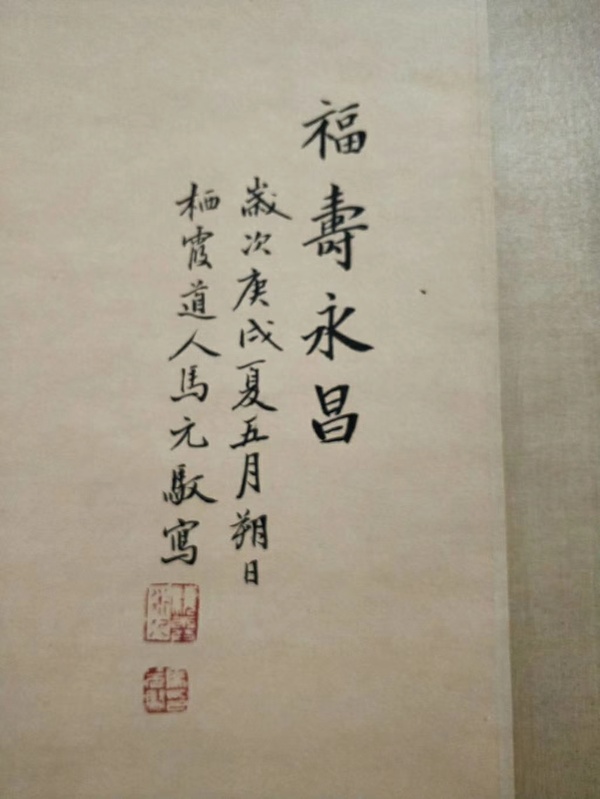 福壽永昌
歲次庚戌夏五月朔日
栖霞道人馬元馭寫